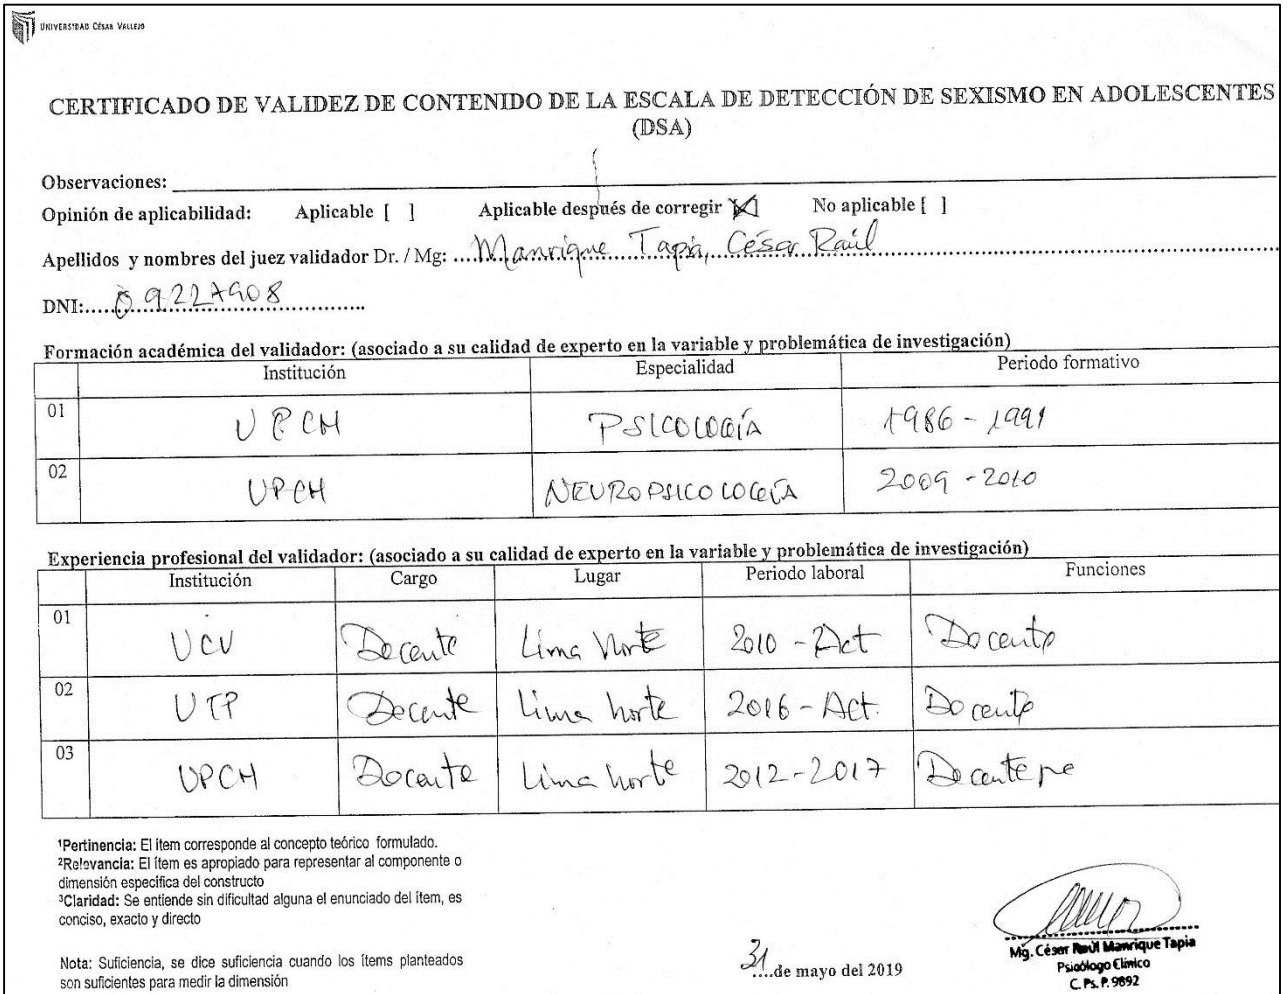 UNIVERSIDAD CÉSAR VALLEJO
CERTIFICADO DE VALIDEZ DE CONTENIDO DE LA ESCALA DE DETECCIÓN DE SEXISMO EN ADOLESCENTES
(DSA)
Observaciones:
Opinión de aplicabilidad: Aplicable [ ] Aplicable después de corregir [X] No aplicable [ ]
Apellidos y nombres del juez validador Dr. / Mg: Manrique Tapia, César Raúl
DNI:
Formación académica del validador: (asociado a su calidad de experto en la variable y problemática de investigación)
Institución Especialidad Periodo formativo
01 UPCH PSICOLOGÍA 1986 - 1991
02 UPCH NEUROPSICOLOGÍA 2009 - 2010
Experiencia profesional del validador: (asociado a su calidad de experto en la variable y problemática de investigación)
Institución Cargo Lugar Periodo laboral Funciones
01 UCV Docente Lima Norte 2010 - Act Docente
02 UTP Docente Lima Norte 2016 - Act. Docente
03 UPCH Docente Lima Norte 2012 - 2017
¹Pertinencia: El ítem corresponde al concepto teórico formulado.
²Relevancia: El ítem es apropiado para representar al componente o
dimensión específica del constructo
³Claridad: Se entiende sin dificultad alguna el enunciado del ítem, es
conciso, exacto y directo
Nota: Suficiencia, se dice suficiencia cuando los ítems planteados
son suficientes para medir la dimensión
31 de mayo del 2019
Mg. César Raúl Manrique Tapia
Psicólogo Clínico
C. Ps. P. 9892